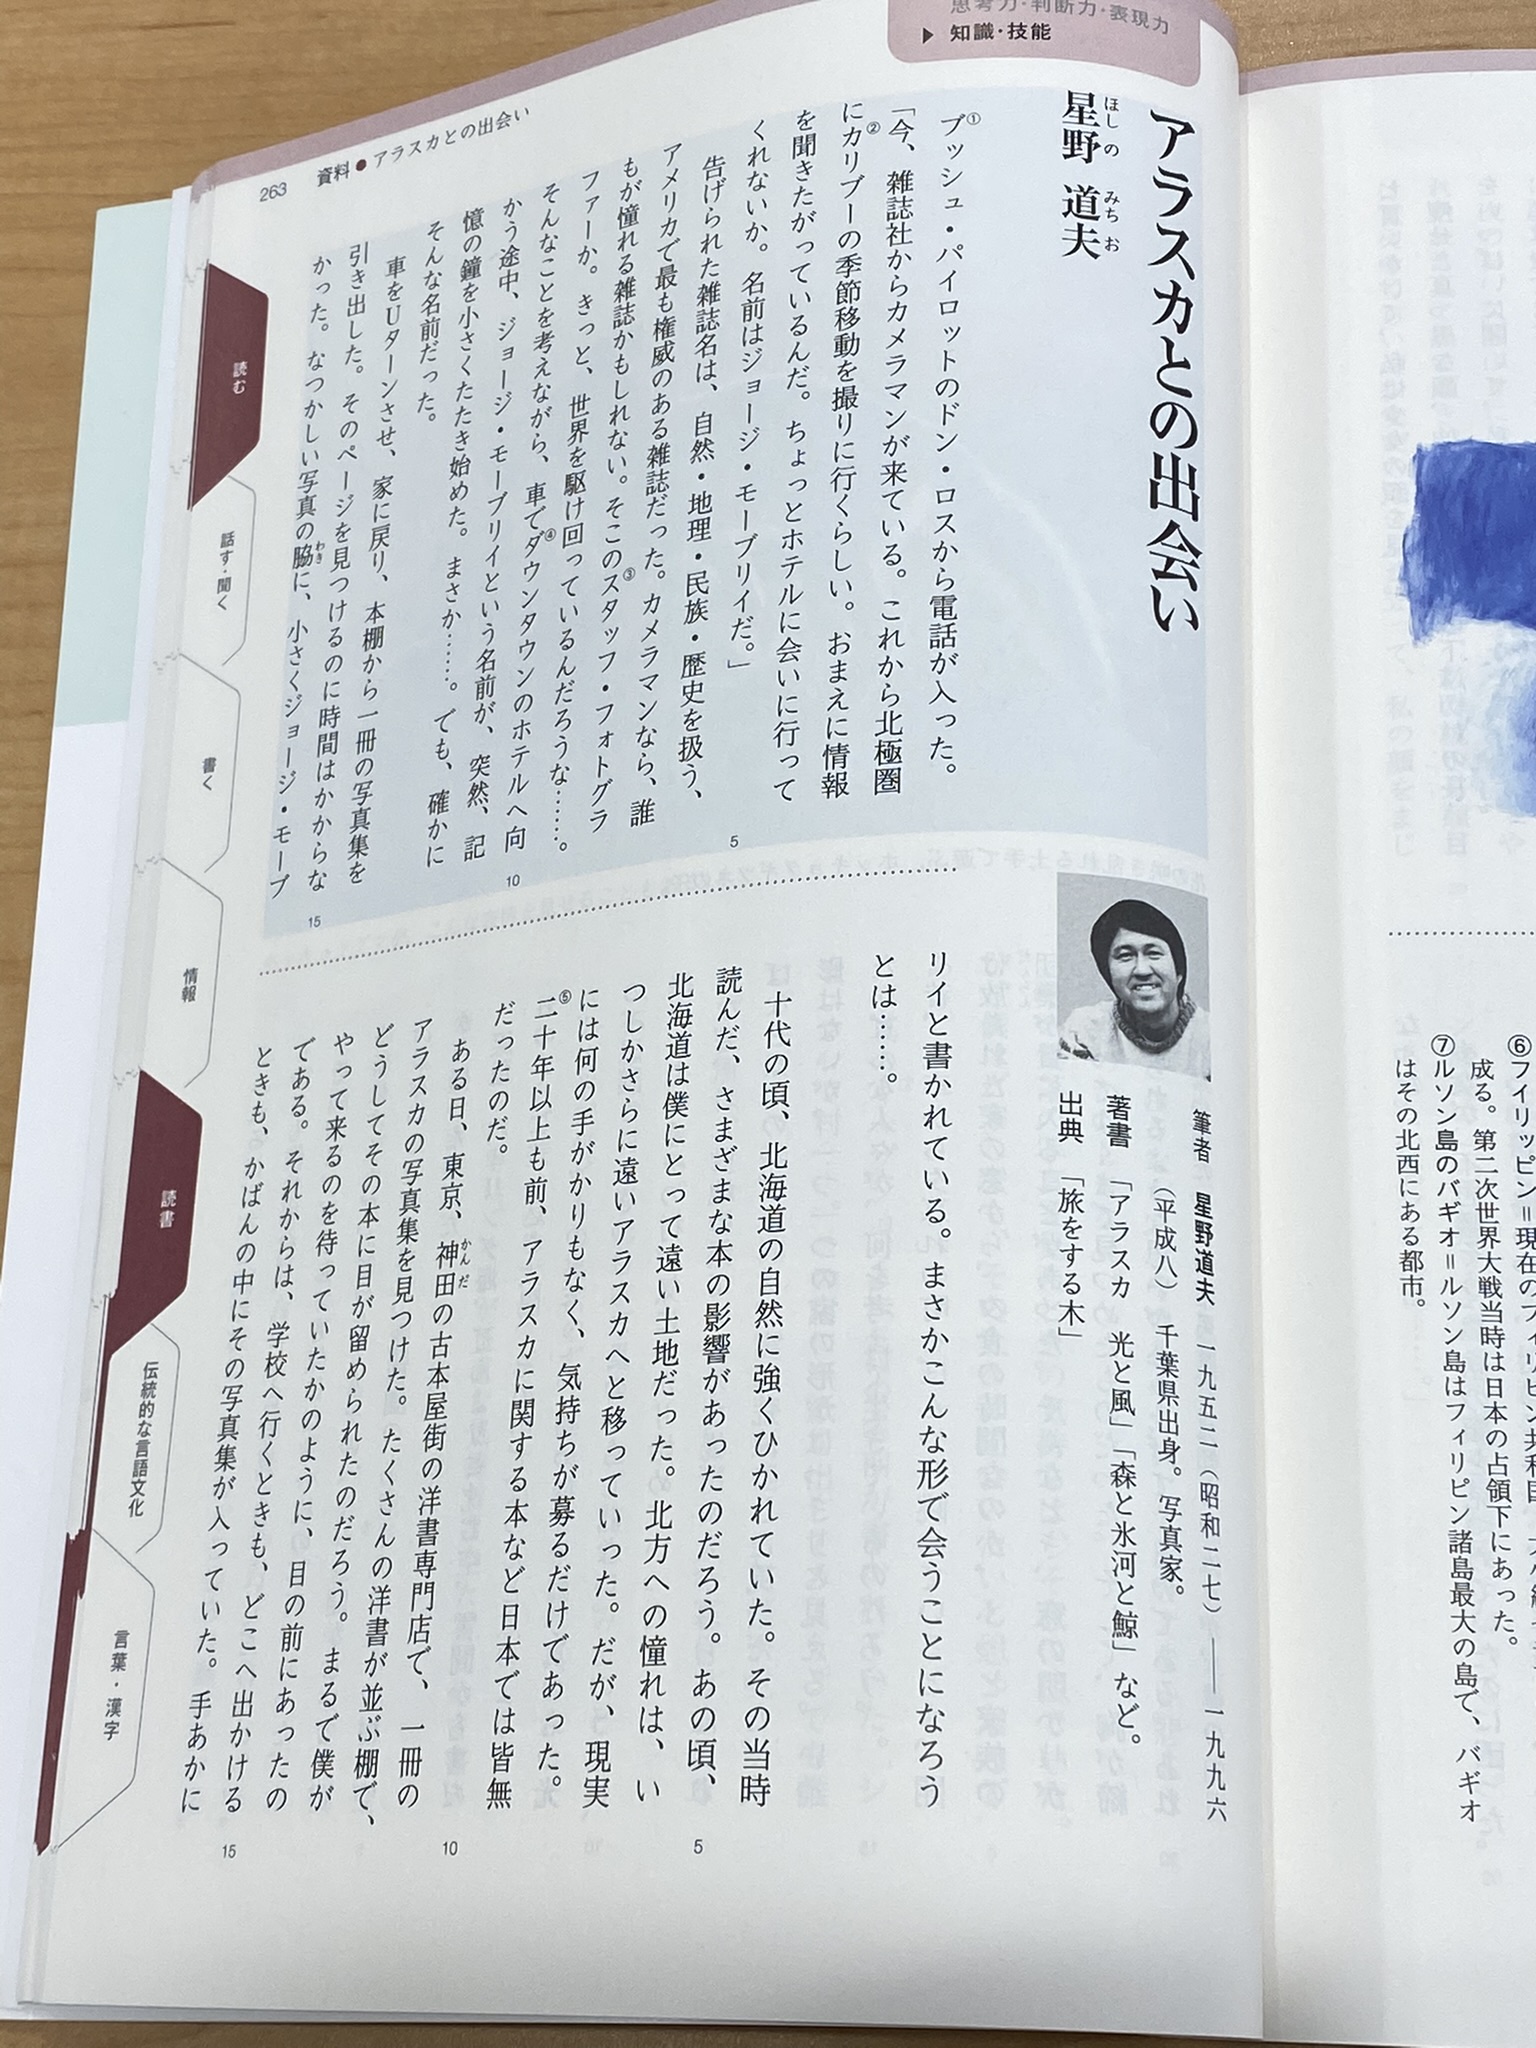 思考力・判断力・表現力
▶ 知識・技能
アラスカとの出会い
星野 道夫
ほしの みちお
①ブッシュ・パイロットのドン・ロスから電話が入った。
「今、雑誌社からカメラマンが来ている。これから北極圏
に②カリブーの季節移動を撮りに行くらしい。おまえに情報
を聞きたがっているんだ。ちょっとホテルに会いに行って
くれないか。名前はジョージ・モーブリイだ。」
告げられた雑誌名は、自然・地理・民族・歴史を扱う、
アメリカで最も権威のある雑誌だった。カメラマンなら、誰
もが憧れる雑誌かもしれない。そこの③スタッフ・フォトグラ
ファーか。きっと、世界を駆け回っているんだろうな……。
そんなことを考えながら、車で④ダウンタウンのホテルへ向
かう途中、ジョージ・モーブリイという名前が、突然、記
憶の鐘を小さくたたき始めた。まさか……。でも、確かに
そんな名前だった。
車をUターンさせ、家に戻り、本棚から一冊の写真集を
引き出した。そのページを見つけるのに時間はかからな
かった。なつかしい写真の脇に、小さくジョージ・モーブ
わき
5
10
15
筆者 星野道夫 一九五二(昭和二七)――一九九六
(平成八) 千葉県出身。写真家。
著書 「アラスカ 光と風」「森と氷河と鯨」など。
出典 「旅をする木」
リイと書かれている。まさかこんな形で会うことになろう
とは……。
十代の頃、北海道の自然に強くひかれていた。その当時
読んだ、さまざまな本の影響があったのだろう。あの頃、
北海道は僕にとって遠い土地だった。北方への憧れは、い
つしかさらに遠いアラスカへと移っていった。だが、現実
には何の手がかりもなく、気持ちが募るだけであった。
⑤二十年以上も前、アラスカに関する本など日本では皆無
だったのだ。
ある日、東京、神田の古本屋街の洋書専門店で、一冊の
かんだ
アラスカの写真集を見つけた。たくさんの洋書が並ぶ棚で、
どうしてその本に目が留められたのだろう。まるで僕が
やって来るのを待っていたかのように、目の前にあったの
である。それからは、学校へ行くときも、どこへ出かける
ときも、かばんの中にその写真集が入っていた。手あかに
5
10
15
263 資料●アラスカとの出会い
読む
話す・聞く
書く
情報
読書
伝統的な言語文化
言葉・漢字
⑥フィリッピン＝現在のフィリピン共和国。
成る。第二次世界大戦当時は日本の占領下にあった。
⑦ルソン島のバギオ＝ルソン島はフィリピン諸島最大の島で、バギオ
はその北西にある都市。